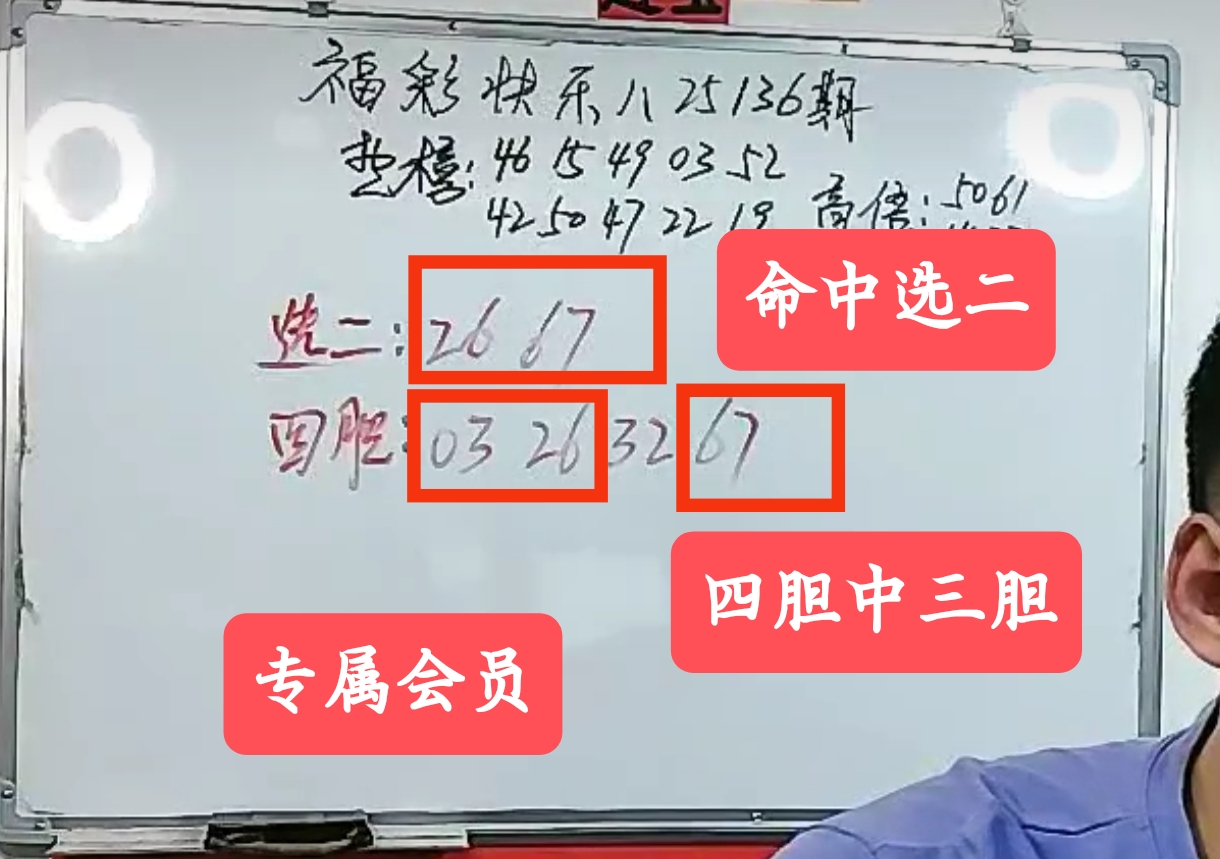 福彩快乐八25136期
垫模:46 15 49 03 52
42 50 47 22 19 高倍:50 61
选二:26 67
命中选二
四胆:03 26 32 67
四胆中三胆
专属会员